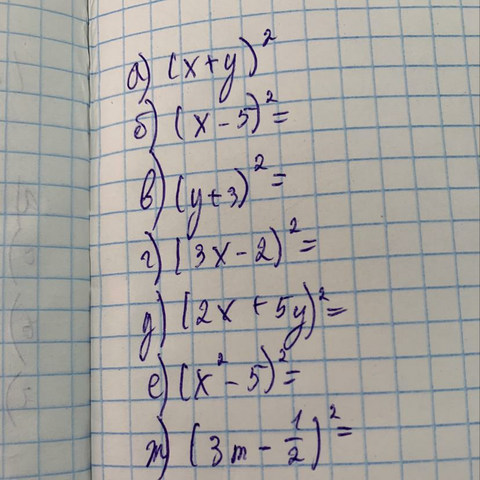 а) (x+y)²
б) (x-5)²=
в) (y+3)²=
г) (3x-2)²=
д) (2x+5y)²=
е) (x²-5)²=
ж) (3m-1/2)²=